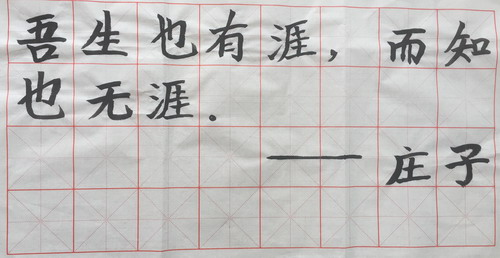 吾生也有涯，而知
也无涯．
——庄子